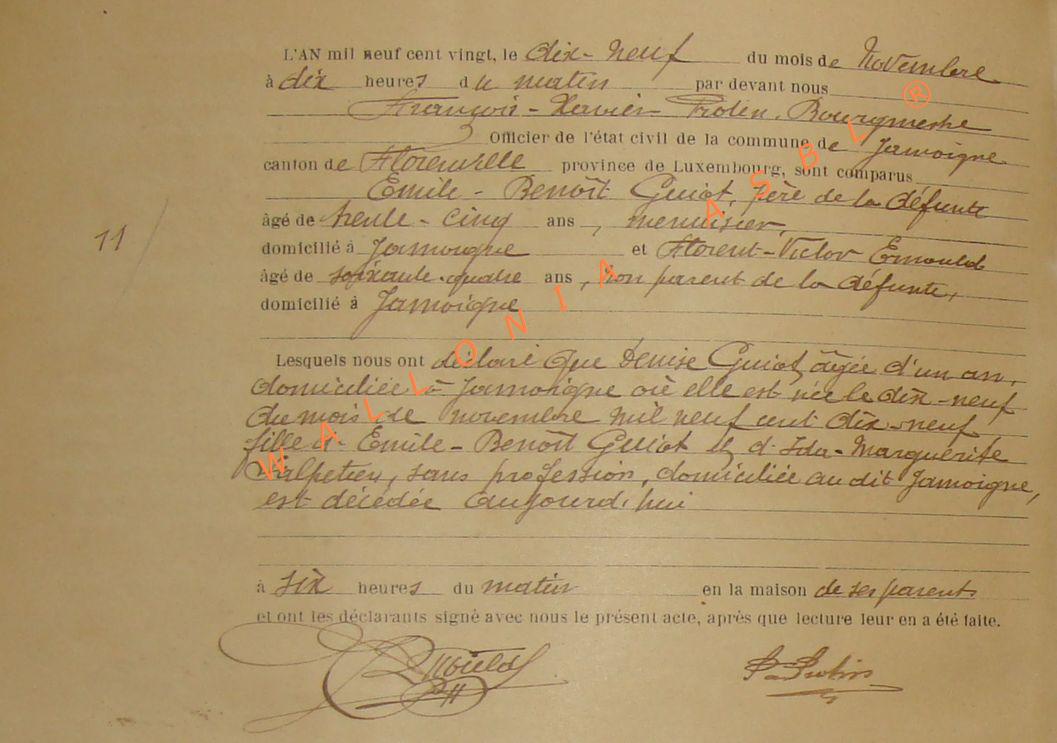 L'AN mil neuf cent vingt, le dix-neuf du mois de Novembre
à dix heures du matin par devant nous
François-Xavier Protin, Bourgmestre
Officier de l'état civil de la commune de Jamoigne
canton de Florenville province de Luxembourg, sont comparus
Emile-Benoît Guiot, père de la défunte
âgé de trente-cinq ans, menuisier,
11
domicilié à Jamoigne et Florent-Victor Ernould
âgé de soixante-quatre ans, non parent de la défunte,
domicilié à Jamoigne
Lesquels nous ont déclaré que Denise Guiot, âgée d'un an,
domiciliée à Jamoigne où elle est née le dix-neuf
du mois de novembre mil neuf cent dix-neuf
fille d'Emile-Benoît Guiot et d'Ida-Marguerite
, sans profession, domiciliée au dit Jamoigne,
est décédée aujourd'hui
à six heures du matin en la maison de ses parents
et ont les déclarants signé avec nous le présent acte, après que lecture leur en a été faite.
Ernould
Protin
WALLONIA ASBL ®